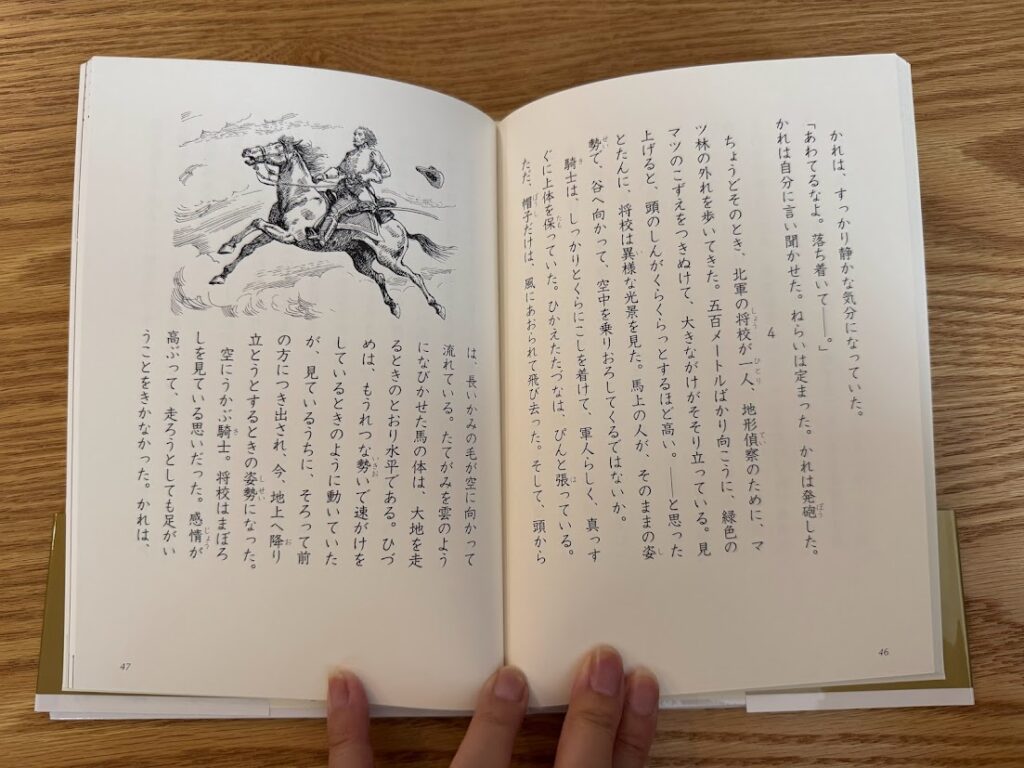 かれは、すっかり静かな気分になっていた。
「あわてるなよ。落ち着いて――。」
かれは自分に言い聞かせた。ねらいは定まった。かれは発砲した。
4
ちょうどそのとき、北軍の将校が一人、地形偵察のために、マ
ツ林の外れを歩いてきた。五百メートルばかり向こうに、緑色の
マツのこずえをつきぬけて、大きながけがそそり立っている。見
上げると、頭のしんがくらくらっとするほど高い。――と思った
とたんに、将校は異様な光景を見た。馬上の人が、そのままの姿
勢で、谷へ向かって、空中を乗りおろしてくるではないか。
騎士は、しっかりとくらにこしを着けて、軍人らしく、真っす
ぐに上体を保っていた。ひかえたたづなは、ぴんと張っている。
ただ、帽子だけは、風にあおられて飛び去った。そして、頭から
46
は、長いかみの毛が空に向かって
流れている。たてがみを雲のよう
になびかせた馬の体は、大地を走
るときのとおり水平である。ひづ
めは、もうれつな勢いで速がけを
しているときのように動いていた
が、見ているうちに、そろって前
の方につき出され、今、地上へ降り
立とうとするときの姿勢になった。
空にうかぶ騎士。将校はまぼろ
しを見ている思いだった。感情が
高ぶって、走ろうとしても足がい
うことをきかなかった。かれは、
47